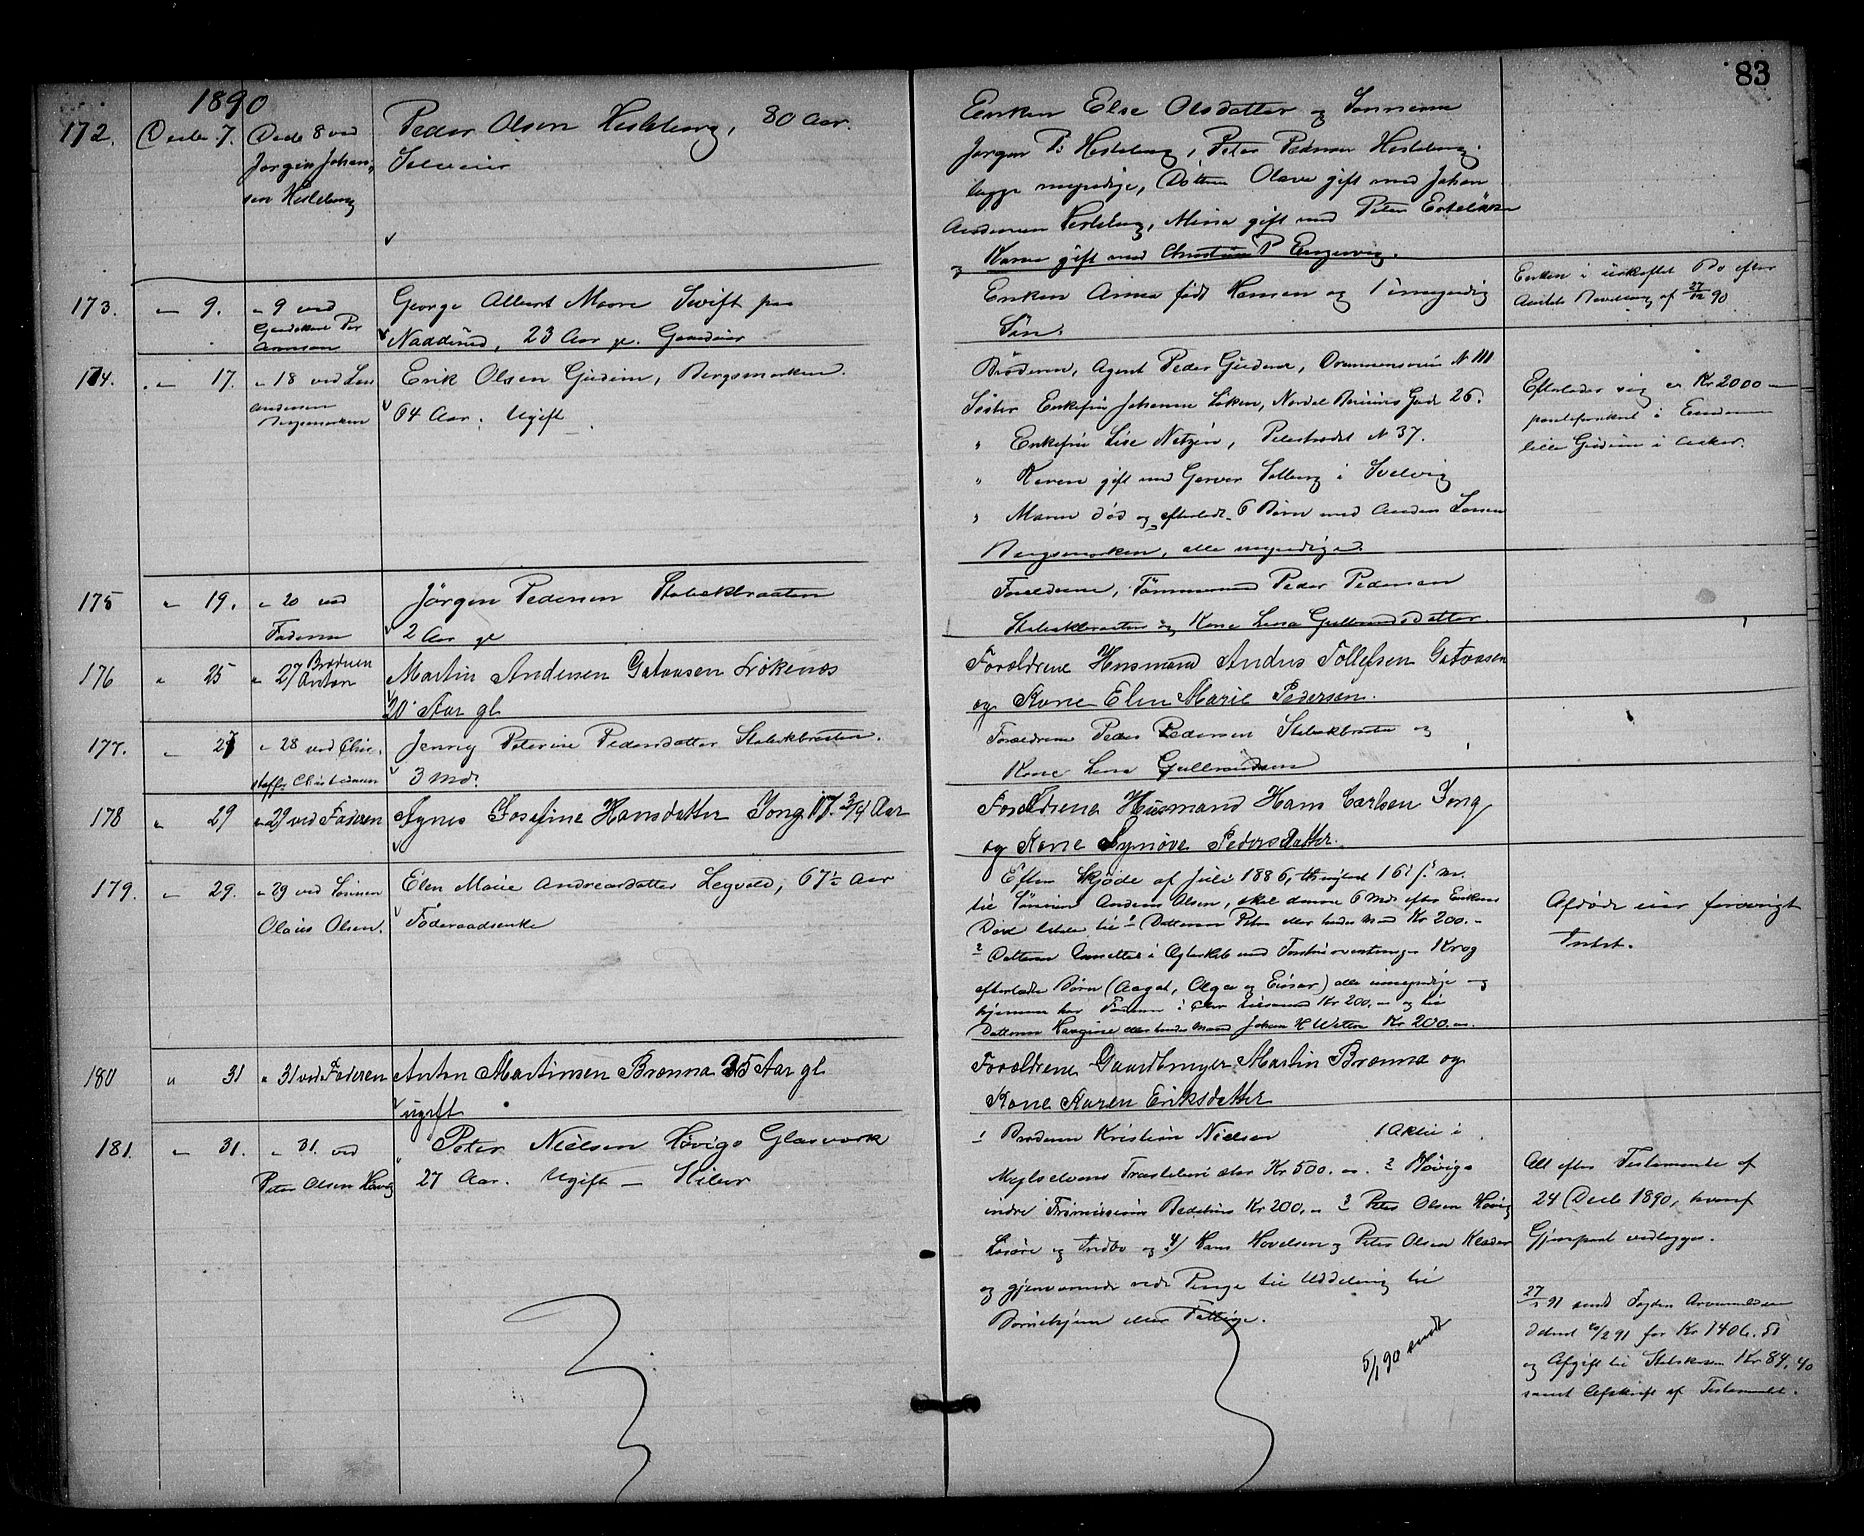 83
1890
172. Decbr 7. Decb 8 ved Jørgen Johansen Hesleberg
Peder Olsen Hesleberg, 80 Aar.
Selveier
Enken Else Olsdatter og Sønnerne
Jørgen P. Hesleberg, Peter Pedersen Hesleberg
begge myndige, Datteren Olava gift med Johan
Andersen Hesleberg, Mina gift med Peter
og Karen gift med Christian P Engervig.
173. " 9. " 9 ved
George Albert Moore Swift paa
Nadderud, 23 Aar gl. Gaardeier
Enken Anna født Hansen og 1 umyndig
Søn.
Enken i uskiftet Bo efter
Bevilling af 27/12 90
174. " 17. " 18 ved Lars
Andersen
Bergsmarken
Erik Olsen Gudim, Bergsmarken.
64 Aar. Ugift
Broderen, Agent Peder Gudim, Drammensvein N 111
Søster Enkefru Johanne Løken, Nordal Bruns Gade 26.
" Enkefru Lise Netzén, Pilestrædet N 37.
" Karen gift med Garver Solberg i Svelvig
" Maren død og efterladt 6 Børn med Anders Larsen
Bergsmarken, alle myndige.
Efterlader sig ca Kr 2000
panteforsikret i Eiendommen
lille Gudim i Asker.
175 " 19. " 20 ved
Faderen
Jørgen Pedersen Stabækbraaten
2 Aar gl
Forældrene, Tømmermand Peder Pedersen
Stabækbraaten og Kone Lena Gulbrandsdatter.
176 " 25 " 27 Broderen
Anton
Martin Andersen Gataasen Løkenæs
20 Aar gl
Forældrene Husmand Andres Tollefsen Gataasen
og Kone Elen Marie Pedersen.
177. " 27 " 28 ved Chri-
stoffer Christensen
Jenny Peterine Pedersdatter Stabækbraaten.
3 Mdr.
Forældrene Peder Pedersen Stabækbraaten og
Kone Lena Gulbrandsen
178 " 29 " 29 ved Faderen
Agnes Josefine Hansdatter Jong 17 3/4 Aar
Forældrene Husmand Hans Carlsen Jong
og Kone Synøve Pedersdatter.
179. " 29. " 29 ved Sønnen
Olaus Olsen.
Elen Marie Andreasdatter Legvold, 67½ Aar
Føderaadsenke
Efter Skjøde af Juli 1886, thinglyst 16/ s. M.
til Sønnen Anders Olsen, skal denne 6 Mdr efter Enkens
Død betale til 1 Datteren eller hendes Mand Kr 200.-
2 Datteren i med Krog
efterladte Børn (Aagot, Olga og Einar) alle umyndige og
hjemme hos Faderen i Kr 200.- og til
Datteren eller hendes Mand Johan H Kr 200.-
Afdøde eier forøvrigt
Intet.
180 " 31 " 31 ved Faderen
Anton Martinsen Brænna 35 Aar gl
ugift
Forældrene Gaardbruger Martin Brænna og
Kone Karen Eriksdatter
181. " 31. " 31. ved
Peter Olsen Høvig
Peter Nielsen Høvigs Glasværk
27 Aar. Ugift
1 Broderen Kristian Nielsen 1 Aktie i
Træsliberi stor Kr 500.- 2 Høvigs
indre Missions Bedehus Kr 200.- 3 Peter Olsen Høvig
Løsøre og Indbo og 4/ Hans Hovelsen og Peter Olsen Klæder
og gjenværende rede Penge til Uddeling til
Børnehjem eller Fattige.
5/1 90 sendt
Alt efter Testamente af
24 Decb 1890, hvoraf
Gjenpart vedlægges.
27/1 91 sendt Fogden Arvemeldelse
dateret for Kr 1406.51
og Afgift til Statskassen Kr. 84.40
samt Afskrift af Testamentet.